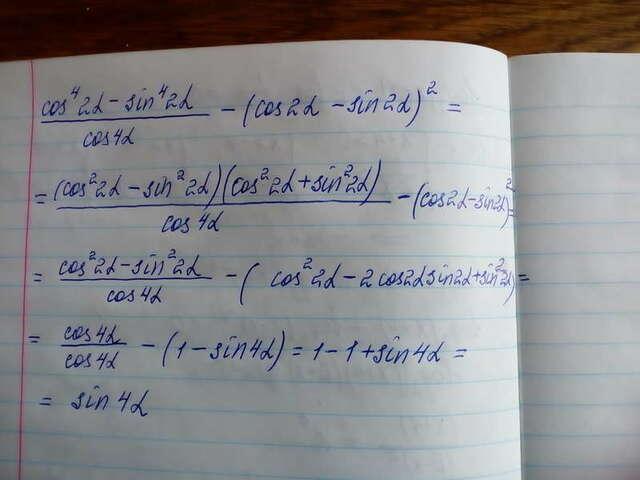 (cos⁴2α − sin⁴2α)/cos4α − (cos2α − sin2α)² =
= (cos²2α − sin²2α)(cos²2α + sin²2α)/cos4α − (cos2α − sin2α)² =
= (cos²2α − sin²2α)/cos4α − (cos²2α − 2cos2α sin2α + sin²2α) =
= cos4α/cos4α − (1 − sin4α) = 1 − 1 + sin4α =
= sin4α